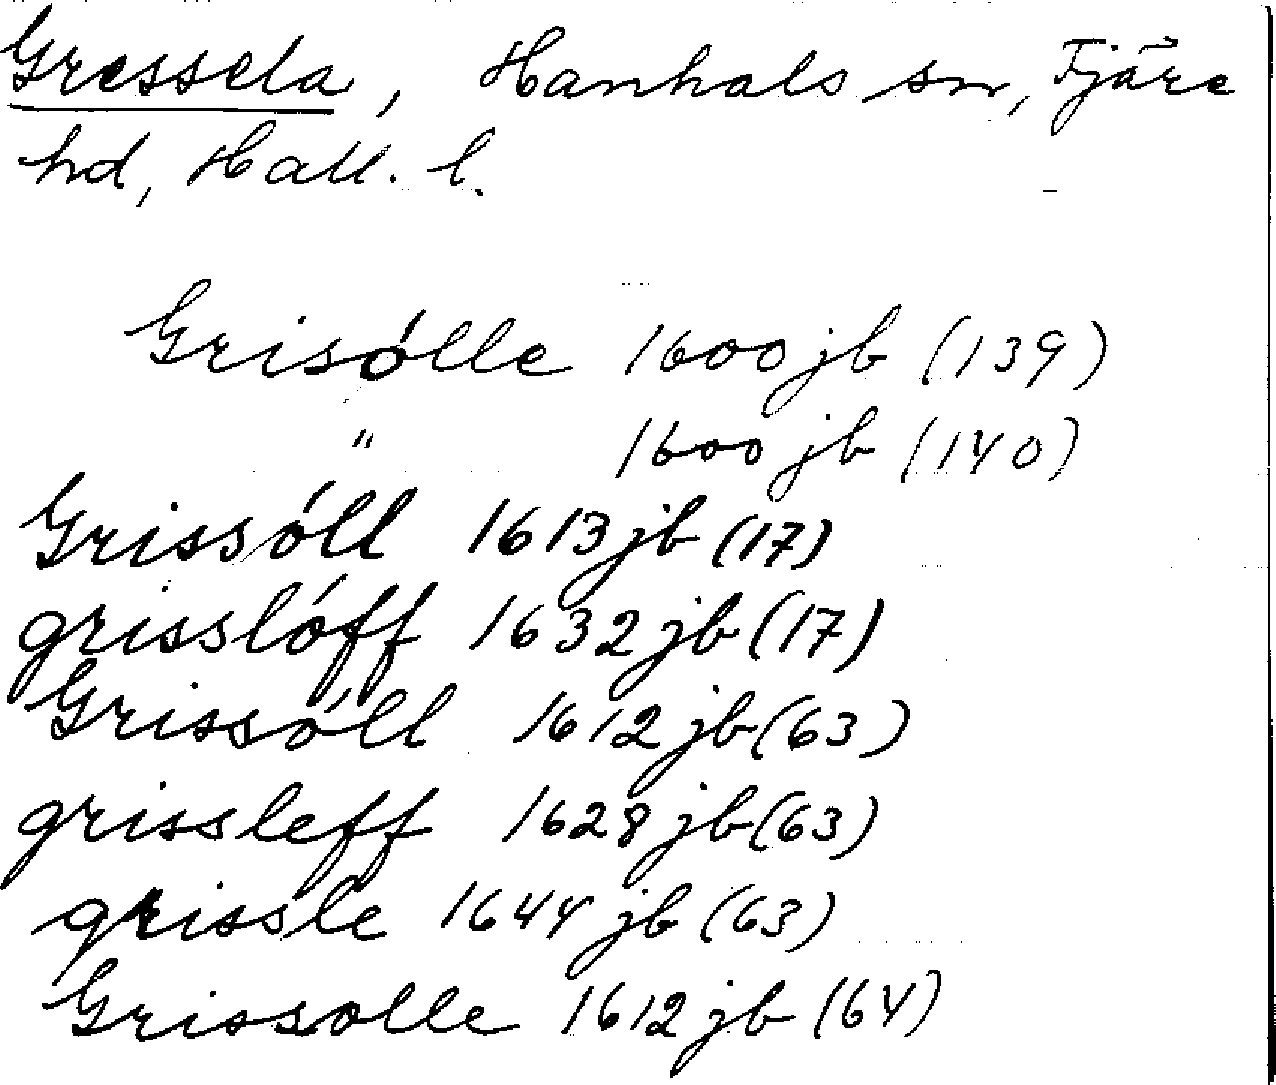 Gressela, Hanhals sn, Fjäre
hd, Hall. l.
Grisólle 1600 jb (139)
" 1600 jb (140)
Grissóll 1613 jb (17)
grisslóff 1632 jb (17)
Grissóll 1612 jb (63)
grissleff 1628 jb (63)
grissle 1644 jb (63)
Grissolle 1612 jb (64)